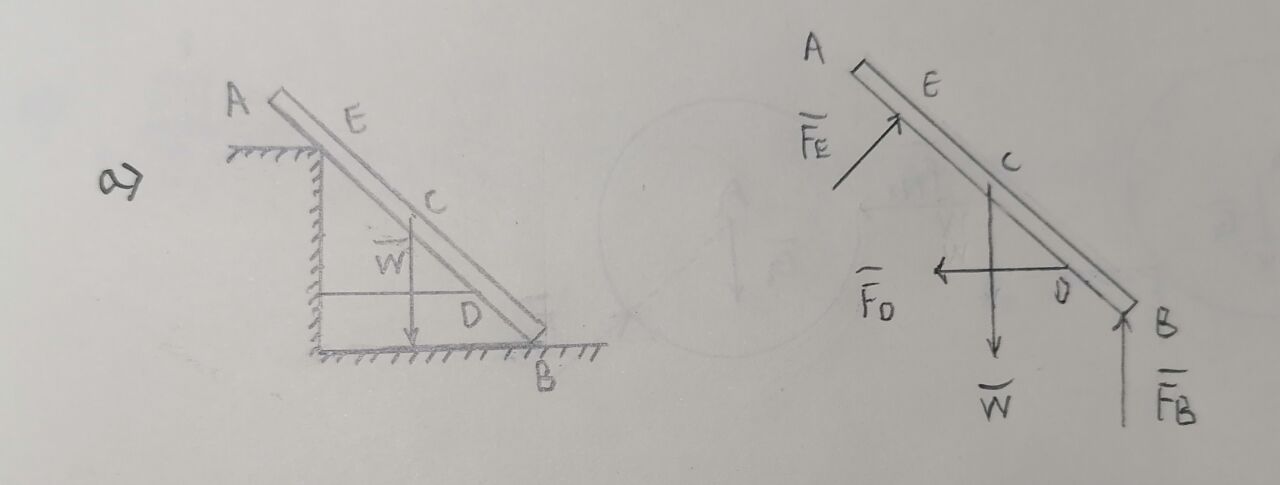 a)
A
E
C
W̅
D
B
A
E
F̅E
C
F̅D
D
W̅
B
F̅B